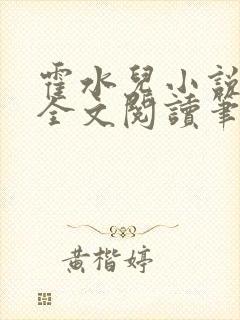 霍水兒小說
全文閱讀筆
黃楷婷